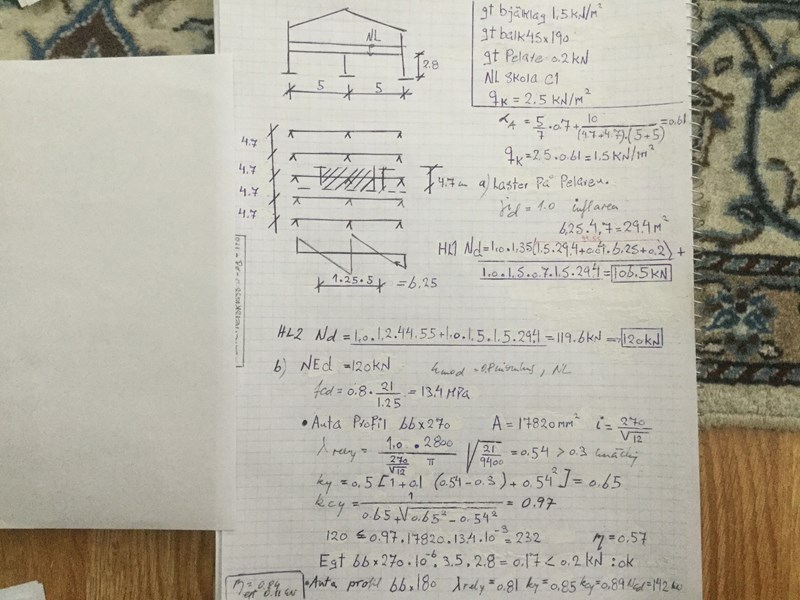 gt bjälklag 1,5 kN/m²
gt balk 45x190
gt Pelare 0.2 kN
NL Skola C1
qK = 2.5 KN/m²
NL
2.8
5 5
αA = 5/7 · 0.7 + 10/(4.7+4.7)·(5+5) = 0.61
qK = 2.5 · 0.61 = 1.5 KN/m²
4.7
4.7
4.7
4.7
4.7 m
a) Laster På Pelaren.
γd = 1.0 inflarea
6,25 · 4,7 = 29.4 m²
HL1 Nd = 1.0 · 1,35 (1.5 · 29.4 + 0.09 · 6.25 + 0.2) +
1.0 · 1.5 · 0.7 · 1.5 · 29.4 = 106.5 KN
1.25 · 5 = 6.25
HL2 Nd = 1.0 · 1.2 · 44.55 + 1.0 · 1.5 · 1.5 · 29.4 = 119.6 kN => 120 kN
b) NEd = 120 KN , NL
fcd = 0.8 · 21/1.25 = 13.4 MPa
• Anta Profil 66 x 270 A = 17820 mm² i = 270/√12
λrely = 1.0 · 2800 / (270/√12) π √21/9400 = 0.54 > 0.3
ky = 0,5 [1 + 0.1 (0.54 - 0.3) + 0.54²] = 0.65
kcy = 1 / 0.65 + √0.65² - 0.54² = 0.97
120 ≤ 0.97 · 17820 · 13.4 · 10⁻³ = 232 η = 0.57
Egt 66 x 270 · 10⁻⁶ · 3.5 · 2.8 = 0.17 < 0.2 KN : ok
η = 0.84
• Anta profil 66 x 180 λrely = 0.81 ky = 0.85 kcy = 0.89